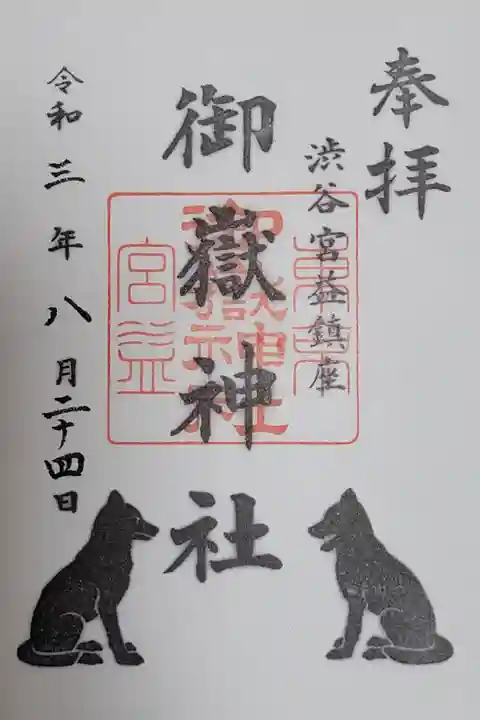 奉拝
渋谷宮益鎮座
御嶽神社
令和三年八月二十四日
東京
御嶽神社
宮益